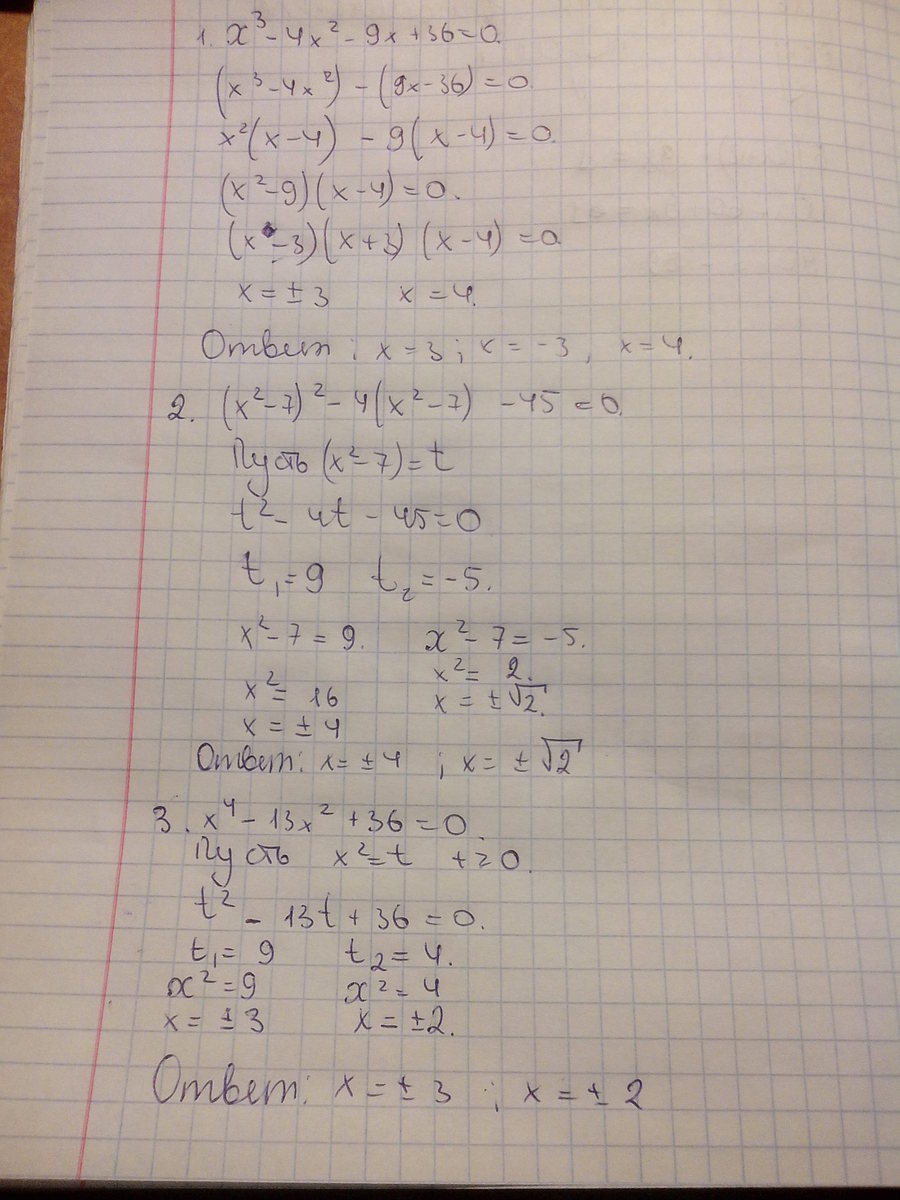 1. x³ - 4x² - 9x + 36 = 0.
(x³ - 4x²) - (9x - 36) = 0.
x²(x - 4) - 9(x - 4) = 0.
(x² - 9)(x - 4) = 0.
(x - 3)(x + 3)(x - 4) = 0
x = ± 3 x = 4.
Ответ: x = 3; x = -3, x = 4.
2. (x² - 7)² - 4(x² - 7) - 45 = 0.
Пусть (x² - 7) = t
t² - 4t - 45 = 0
t₁ = 9 t₂ = -5.
x² - 7 = 9. x² - 7 = -5.
x² = 16 x² = 2.
x = ± 4 x = ±√2.
Ответ: x = ± 4 ; x = ± √2
3. x⁴ - 13x² + 36 = 0.
Пусть x² = t t ≥ 0.
t² - 13t + 36 = 0.
t₁ = 9 t₂ = 4.
x² = 9 x² = 4
x = ± 3 x = ±2.
Ответ: x = ± 3 ; x = ± 2